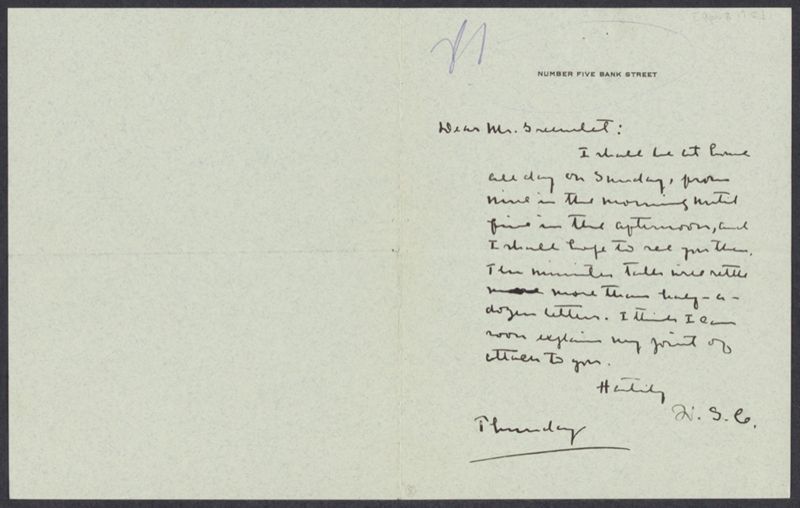 NUMBER FIVE BANK STREET
Dear Mr. Greenslet:
I shall be at home
all day on Sunday, from
nine in the morning until
five in the afternoon, and
I shall hope to see you then.
Ten minutes talk will settle
more than half-a-
dozen letters. I think I can
soon explain my point of
attack to you.
Hastily
W. S. C.
Thursday